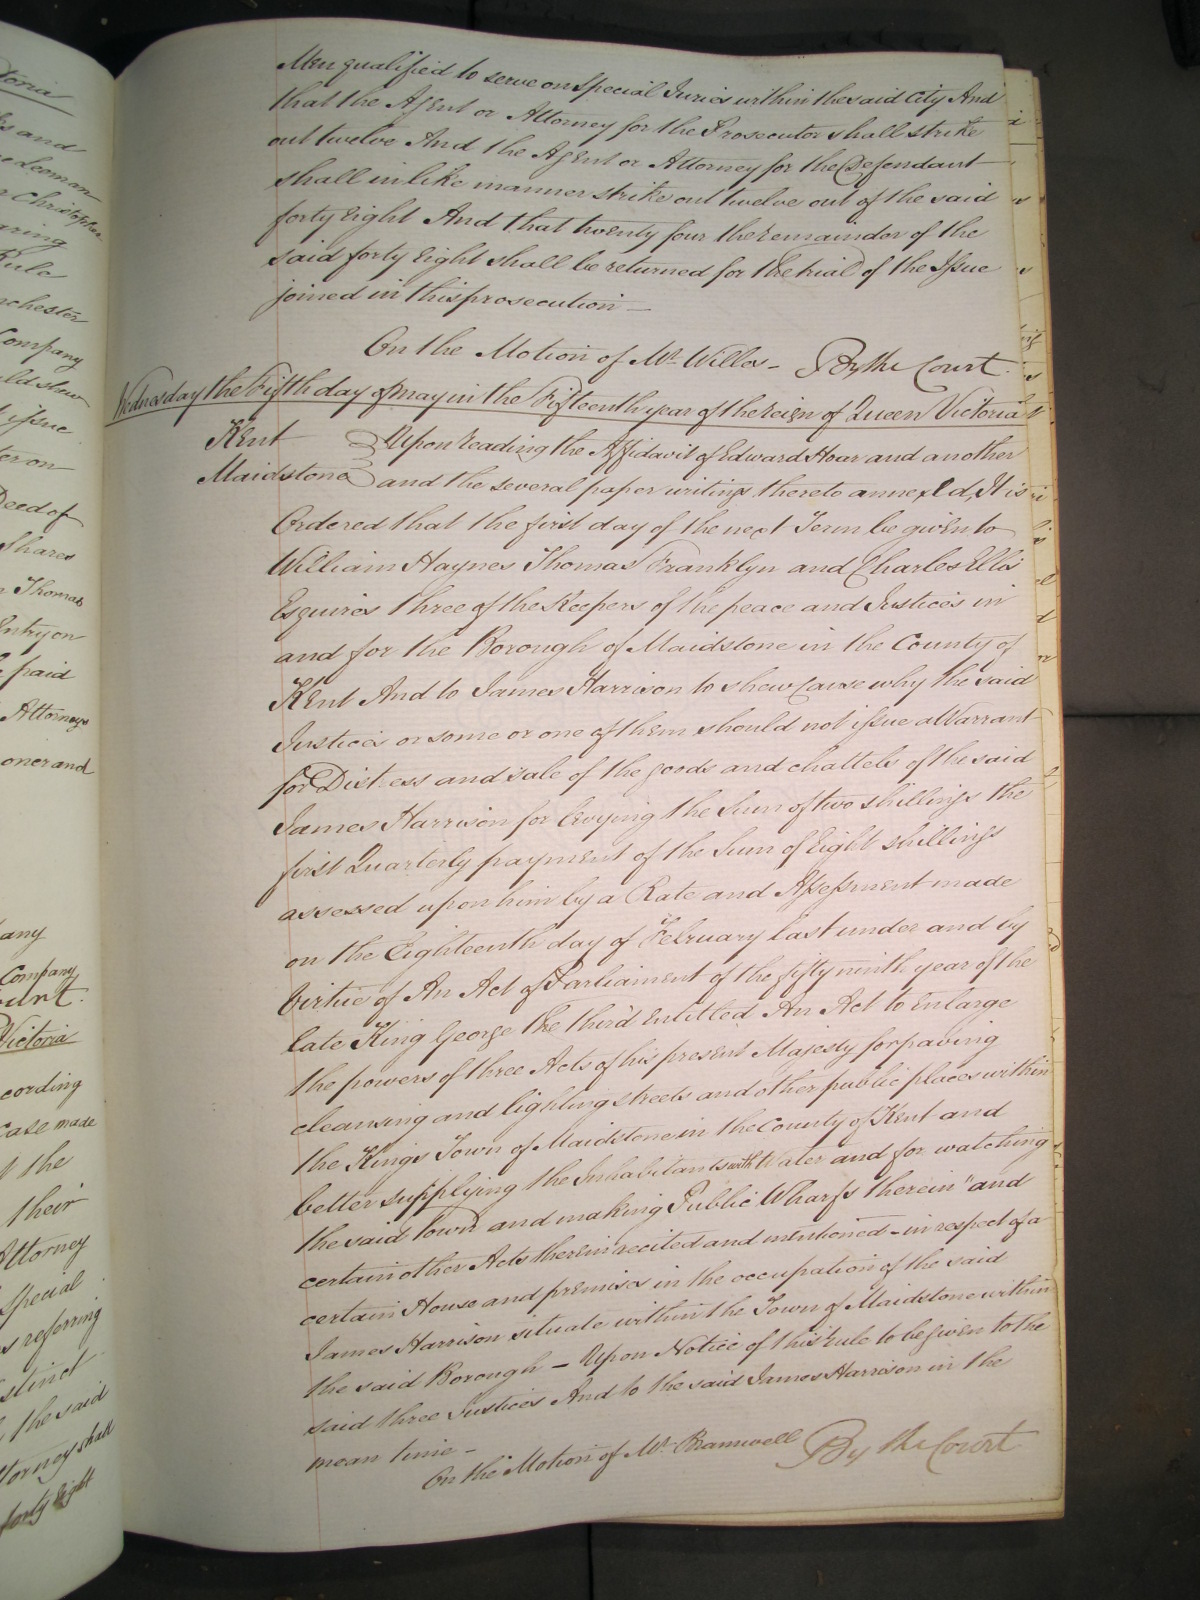 toria
s and
edeoman
n Christopher
aring
Rule
nchester
Company
uld shew
t issue
ter on
Deed of
Shares
n Thomas
Entry on
e paid
Attorneys
oner and
any
Company
urt.
Victoria
cording
case made
t the
their
Attorney
Special
s referring
stinct
the said
ttorney shall
forty Eight
Men qualified to serve on Special Juries within the said City And
that the Agent or Attorney for the Prosecutor shall strike
out twelve And the Agent or Attorney for the Defendant
shall in like manner strike out twelve out of the said
forty Eight And that twenty four the remainder of the
said forty Eight shall be returned for the trial of the Issue
joined in this prosecution —
On the Motion of Mr. Willes - By the Court.
Wednesday the Fifth day of May in the Fifteenth year of the reign of Queen Victoria
Kent Upon reading the Affidavit of Edward Hoar and another
Maidstone and the several paper writings thereto annexed, It is
Ordered that the first day of the next Term be given to
William Haynes Thomas Franklyn and Charles Ellis
Esquires three of the Keepers of the peace and Justices in
and for the Borough of Maidstone in the County of
Kent And to James Harrison to shew Cause why the said
Justices or some or one of them should not issue a Warrant
for Distress and Sale of the goods and chattels of the said
James Harrison for levying the Sum of two shillings the
first Quarterly payment of the Sum of Eight shillings
assessed upon him by a Rate and Assessment made
on the Eighteenth day of February last under and by
virtue of An Act of Parliament of the fifty ninth year of the
late King George the third entitled An Act to enlarge
the powers of three Acts of his present Majesty for paving
cleansing and lighting streets and other public places within
the Kings Town of Maidstone in the County of Kent and
better supplying the Inhabitants with Water and for watching
the said Town and making Public Wharfs therein" and
certain other Acts therein recited and mentioned - in respect of a
certain House and premises in the occupation of the said
James Harrison situate within the Town of Maidstone within
the said Borough - Upon Notice of this rule to be given to the
said three Justices And to the said James Harrison in the
mean time -
On the Motion of Mr. Bramwell By the Court